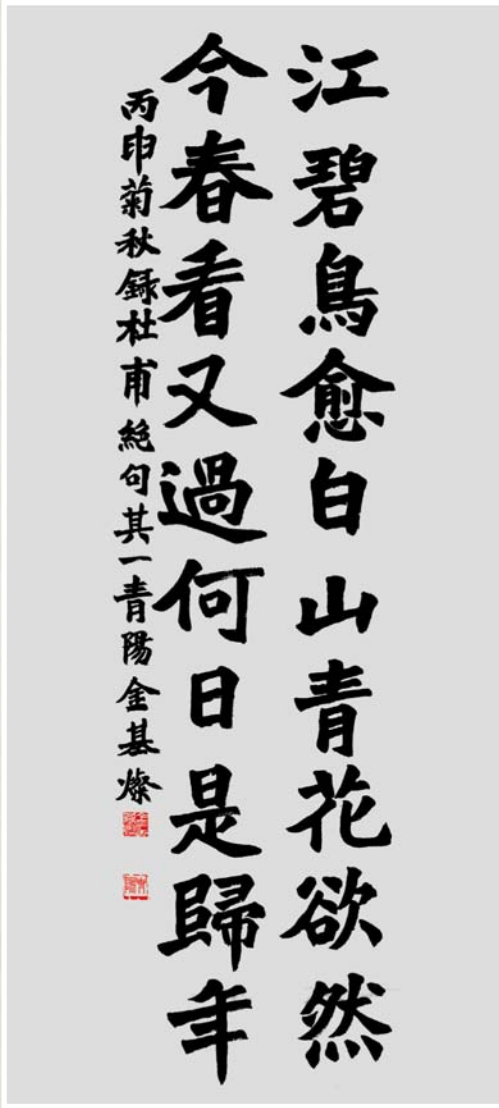 江碧鳥愈白山青花欲然
今春看又過何日是歸年
丙申菊秋録杜甫絕句其一青陽金基燦